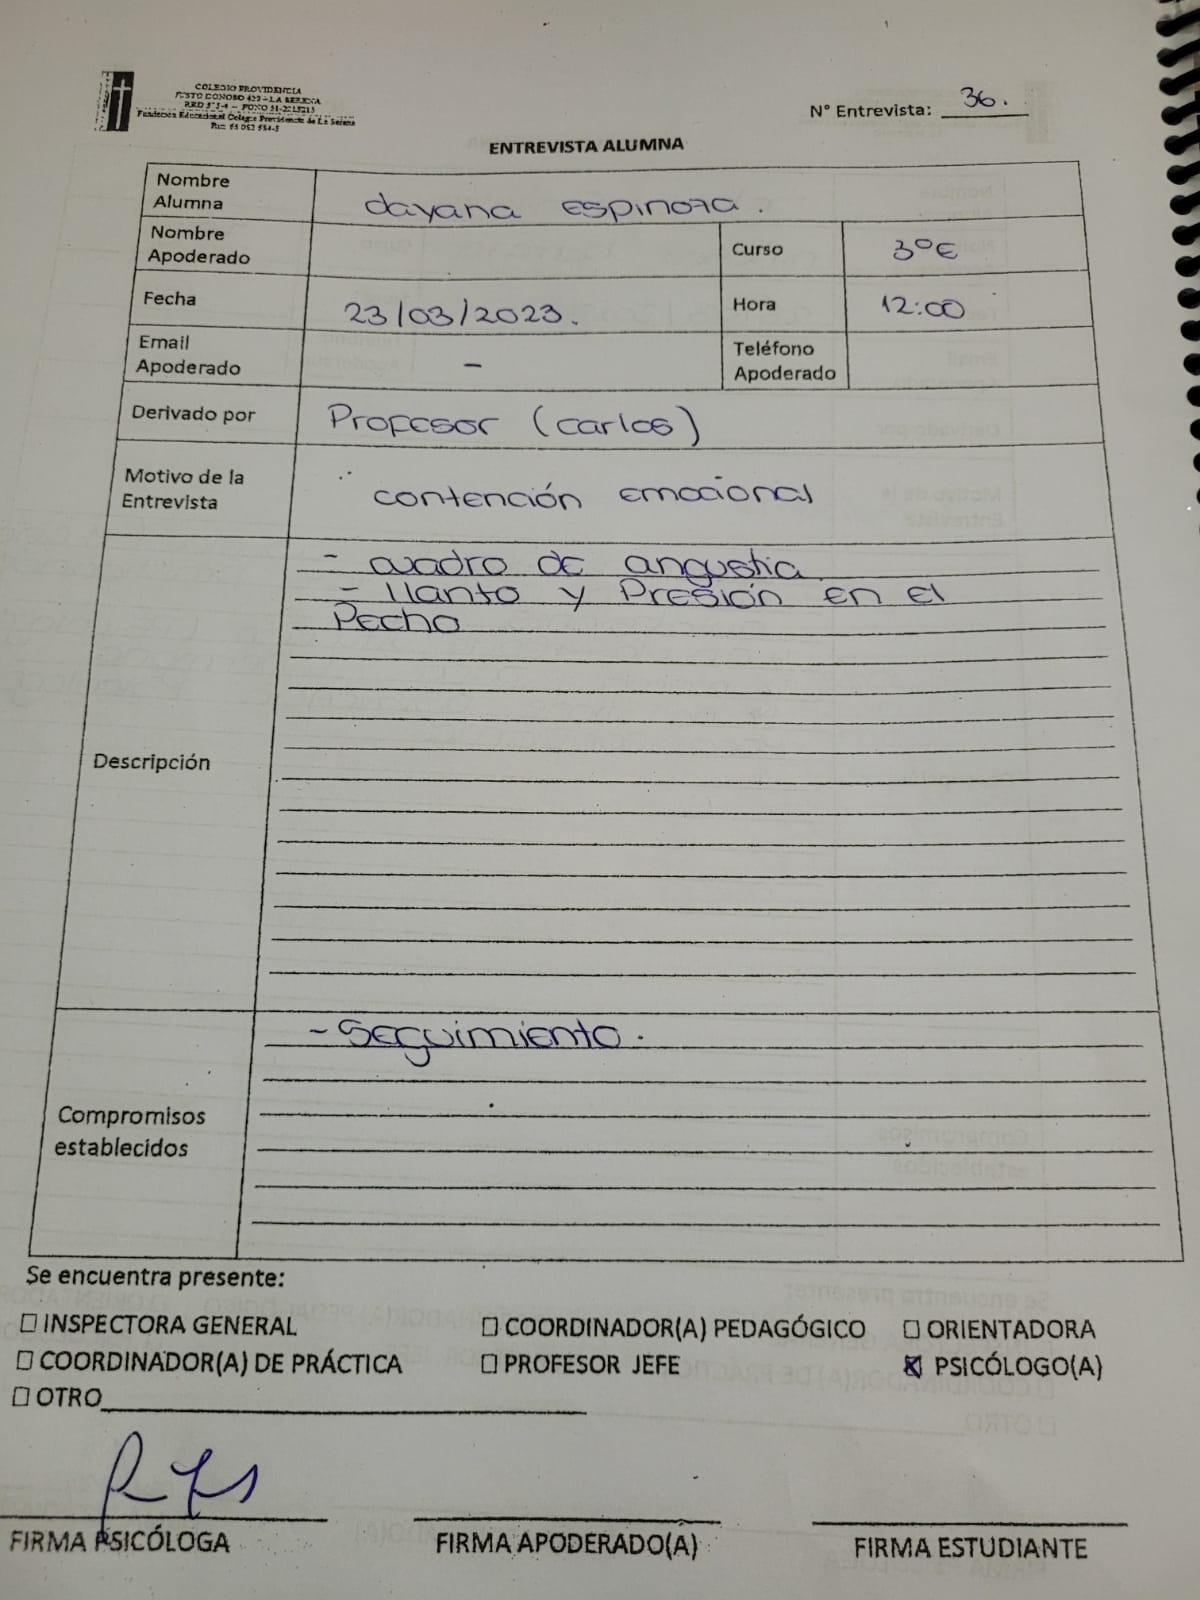 COLEGIO PROVIDENCIA
JUSTO DONOSO 420 - LA SERENA
Fundación Educacional Colegio Providencia de La Serena
N° Entrevista: 36.
ENTREVISTA ALUMNA
Nombre Alumna dayana espinoza.
Nombre Apoderado Curso 3°E
Fecha 23/03/2023. Hora 12:00
Email Apoderado - Teléfono Apoderado
Derivado por Profesor (carlos)
Motivo de la Entrevista contención emocional
- cuadro de angustia
- llanto y Presión en el
Pecho
Descripción
- Seguimiento.
Compromisos
establecidos
Se encuentra presente:
INSPECTORA GENERAL COORDINADOR(A) PEDAGÓGICO ORIENTADORA
COORDINADOR(A) DE PRÁCTICA PROFESOR JEFE X PSICÓLOGO(A)
OTRO
FIRMA PSICÓLOGA FIRMA APODERADO(A) FIRMA ESTUDIANTE